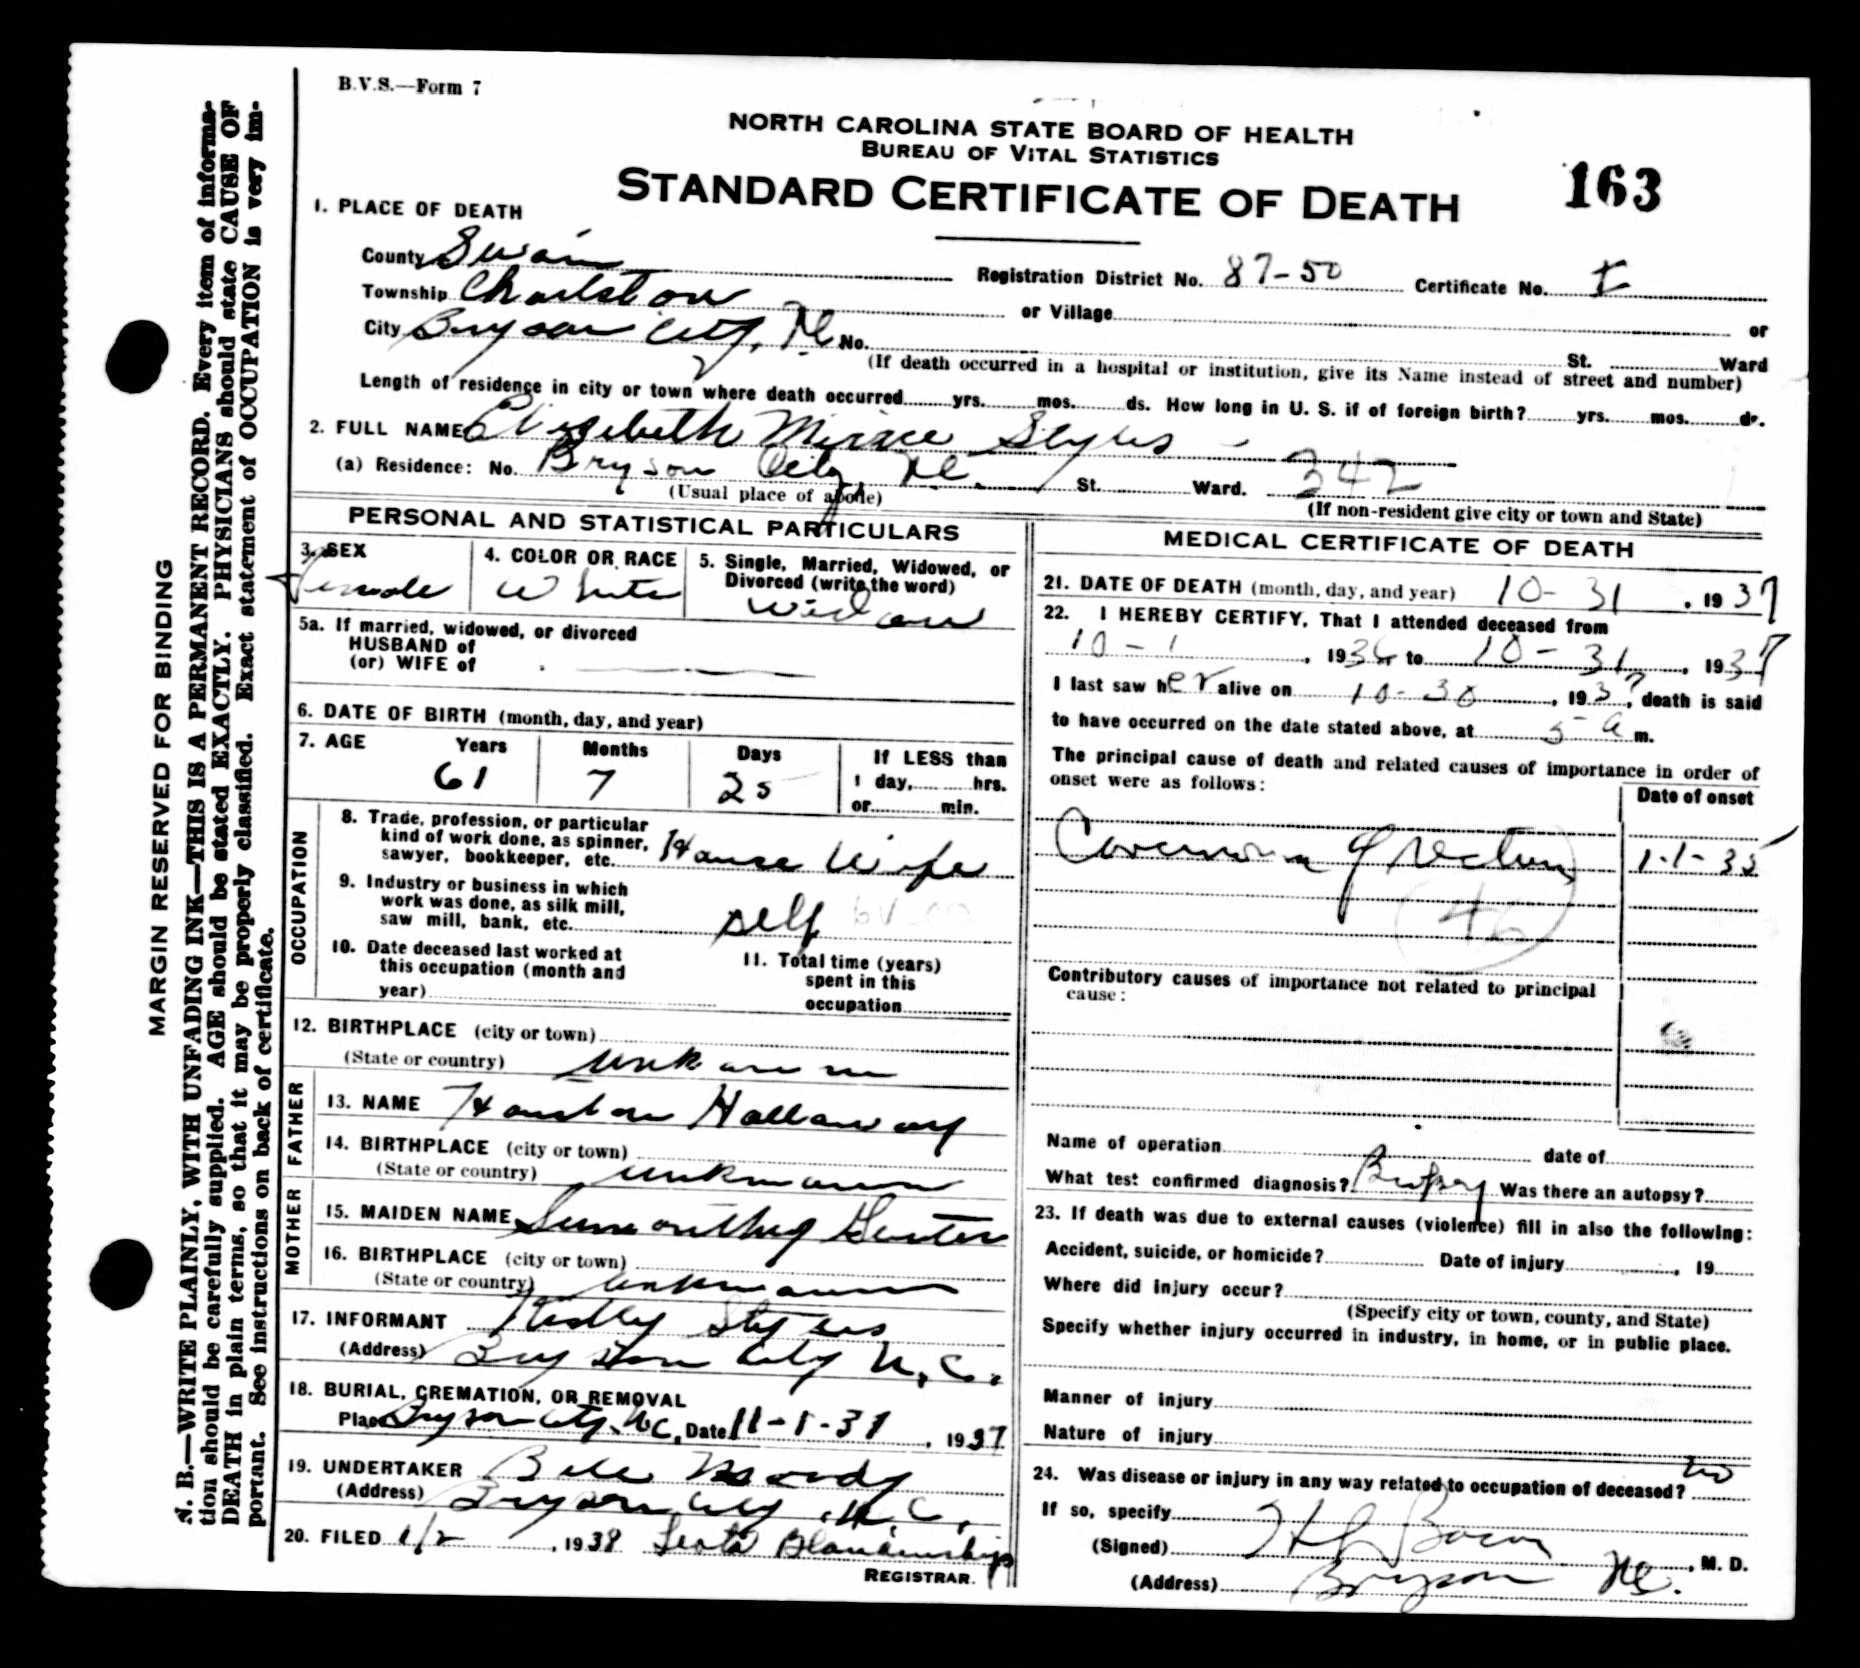 B.V.S.—Form 7
NORTH CAROLINA STATE BOARD OF HEALTH
BUREAU OF VITAL STATISTICS
STANDARD CERTIFICATE OF DEATH
163
1. PLACE OF DEATH
County Swain Registration District No. 87-50 Certificate No. I
Township Charlston or Village or
City Bryson City, NC No. St. Ward
(If death occurred in a hospital or institution, give its Name instead of street and number)
Length of residence in city or town where death occurred yrs. mos. ds. How long in U. S. if of foreign birth? yrs. mos. ds.
2. FULL NAME Elizabeth Styles
(a) Residence: No. Bryson City NC. St. Ward. 342
(Usual place of abode) (If non-resident give city or town and State)
PERSONAL AND STATISTICAL PARTICULARS
3. SEX
female
4. COLOR OR RACE
White
5. Single, Married, Widowed, or
Divorced (write the word)
widow
5a. If married, widowed, or divorced
HUSBAND of
(or) WIFE of
6. DATE OF BIRTH (month, day, and year)
7. AGE Years Months Days If LESS than
61 7 25 1 day, hrs.
or min.
OCCUPATION
8. Trade, profession, or particular
kind of work done, as spinner,
sawyer, bookkeeper, etc. House Wife
9. Industry or business in which
work was done, as silk mill,
saw mill, bank, etc. self
10. Date deceased last worked at
this occupation (month and
year)
11. Total time (years)
spent in this
occupation
12. BIRTHPLACE (city or town)
(State or country) unknown
FATHER
13. NAME Houston Hallaway
14. BIRTHPLACE (city or town)
(State or country) unknown
MOTHER
15. MAIDEN NAME
16. BIRTHPLACE (city or town)
(State or country) unknown
17. INFORMANT Styles
(Address) Bryson City N.C.
18. BURIAL, CREMATION, OR REMOVAL
Place Bryson City NC. Date 11-1-37, 1937
19. UNDERTAKER Bill Moody
(Address) Bryson City, N.C.
20. FILED 1/2, 1938
REGISTRAR.
MEDICAL CERTIFICATE OF DEATH
21. DATE OF DEATH (month, day, and year) 10-31, 1937
22. I HEREBY CERTIFY, That I attended deceased from
10-1, 1936 to 10-31, 1937
I last saw her alive on 10-30, 1937, death is said
to have occurred on the date stated above, at 5 a m.
The principal cause of death and related causes of importance in order of
onset were as follows:
Date of onset
Carcinoma of rectum 1-1-35
46
Contributory causes of importance not related to principal
cause:
Name of operation date of
What test confirmed diagnosis? Biopsy Was there an autopsy?
23. If death was due to external causes (violence) fill in also the following:
Accident, suicide, or homicide? Date of injury , 19
Where did injury occur?
(Specify city or town, county, and State)
Specify whether injury occurred in industry, in home, or in public place.
Manner of injury
Nature of injury
24. Was disease or injury in any way related to occupation of deceased? no
If so, specify
(Signed) , M. D.
(Address) Bryson NC.
MARGIN RESERVED FOR BINDING
N. B.—WRITE PLAINLY, WITH UNFADING INK—THIS IS A PERMANENT RECORD. Every item of informa-
tion should be carefully supplied. AGE should be stated EXACTLY. PHYSICIANS should state CAUSE OF
DEATH in plain terms, so that it may be properly classified. Exact statement of OCCUPATION is very im-
portant. See instructions on back of certificate.